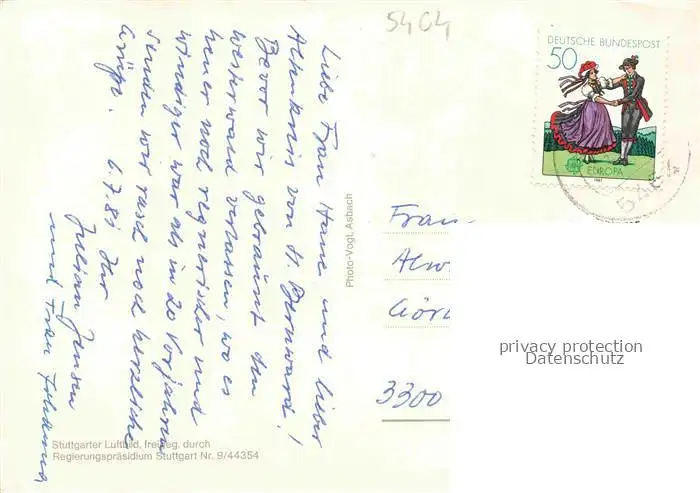 5404
DEUTSCHE BUNDESPOST
50
EUROPA
1981
Liebe Frau Hane und lieber
Altenkreis von St. Bernward!
Bevor wir gebräunt den
Westerwald verlassen, wo es
heuer noch regnerischer und
windiger war als in 20 Vorjahren
senden wir rasch noch herzliche
Grüße. 6.7.81 Ihr
Julian Jensen
und Frau Johanna
Photo-Vogt, Asbach
Frau
Alw
Gör
3300
privacy protection
Datenschutz
Stuttgarter Luftbild, freigeg. durch
Regierungspräsidium Stuttgart Nr. 9/44354